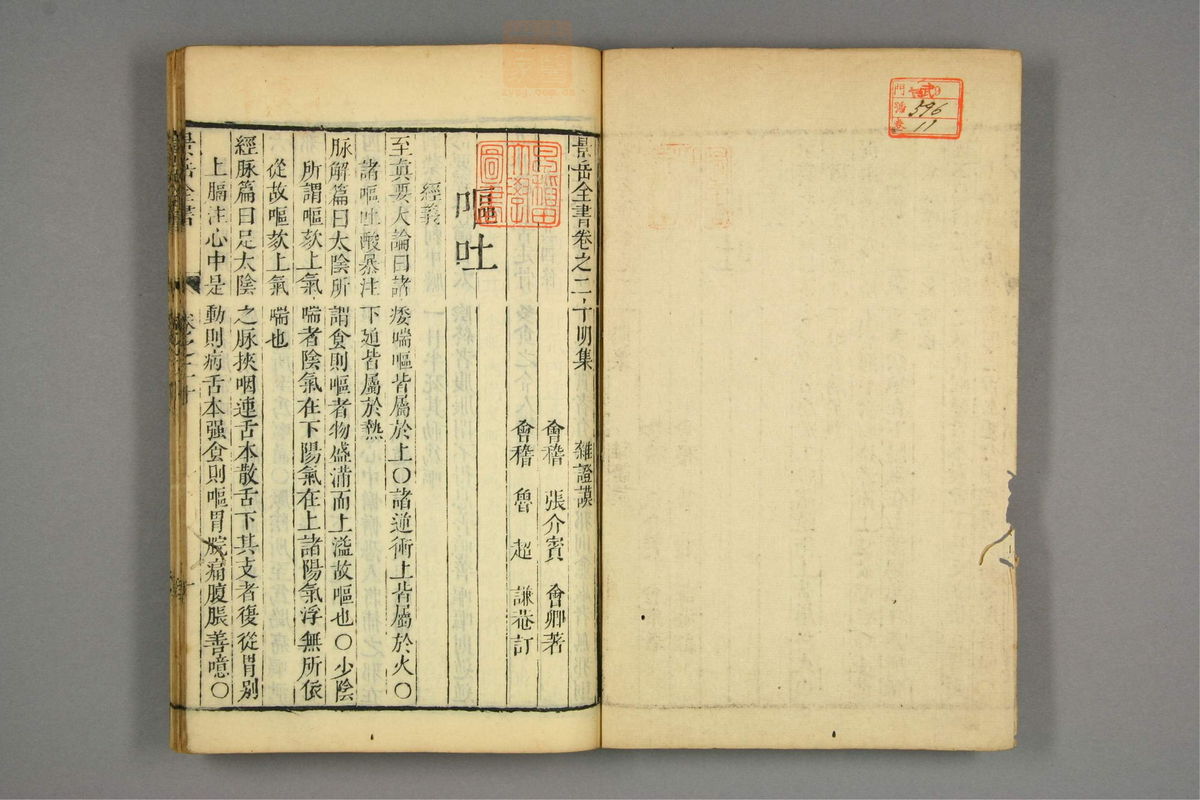 景岳全書卷之二十明集　雜證謨
會稽　張介賓　會卿著
會稽　魯超　謙菴訂
嘔吐
經義
至眞要大論曰諸痿喘嘔皆屬於上○諸逆衝上皆屬於火○
諸嘔吐酸暴注下廹皆屬於熱
脉解篇曰太陰所謂食則嘔者物盛滿而上溢故嘔也○少陰
所謂嘔欬上氣喘者陰氣在下陽氣在上諸陽氣浮無所依
從故嘔欬上氣喘也
經脉篇曰足太陰之脉挾咽連舌本散舌下其支者復從胃别
上膈注心中是動則病舌本强食則嘔胃脘痛腹脹善噫○
景岳全書
卷之二十
早稻田大學圖書
門
號 596
卷 11